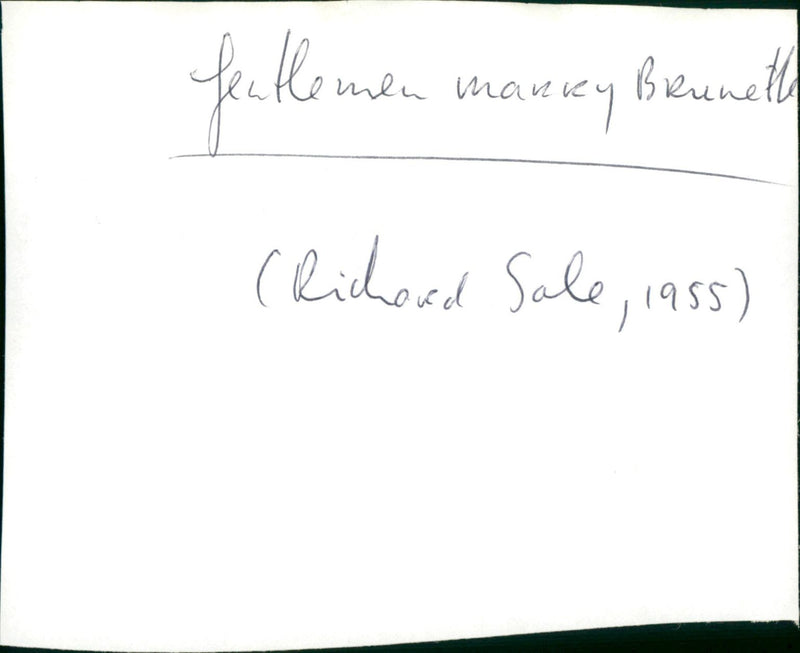 Gentlemen marry Brunette
(Richard Sale, 1955)